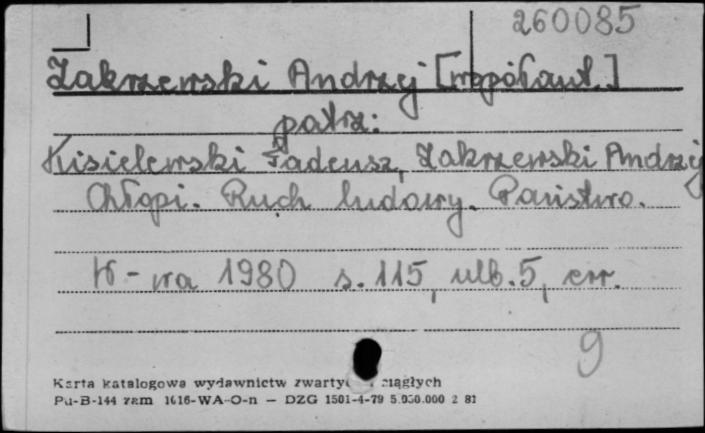 260085
Zakrzewski Andrzej [współaut.]
patrz:
Kisielewski Tadeusz, Zakrzewski Andrzej
Chłopi. Ruch ludowy. Państwo.
W-wa 1980 s. 115, ulb. 5, err.
9
Karta katalogowa wydawnictw ciągłych
Pu-B-144 zam 1616-WA-O-n — DZG 1501-4-79 5.000.000 2 81